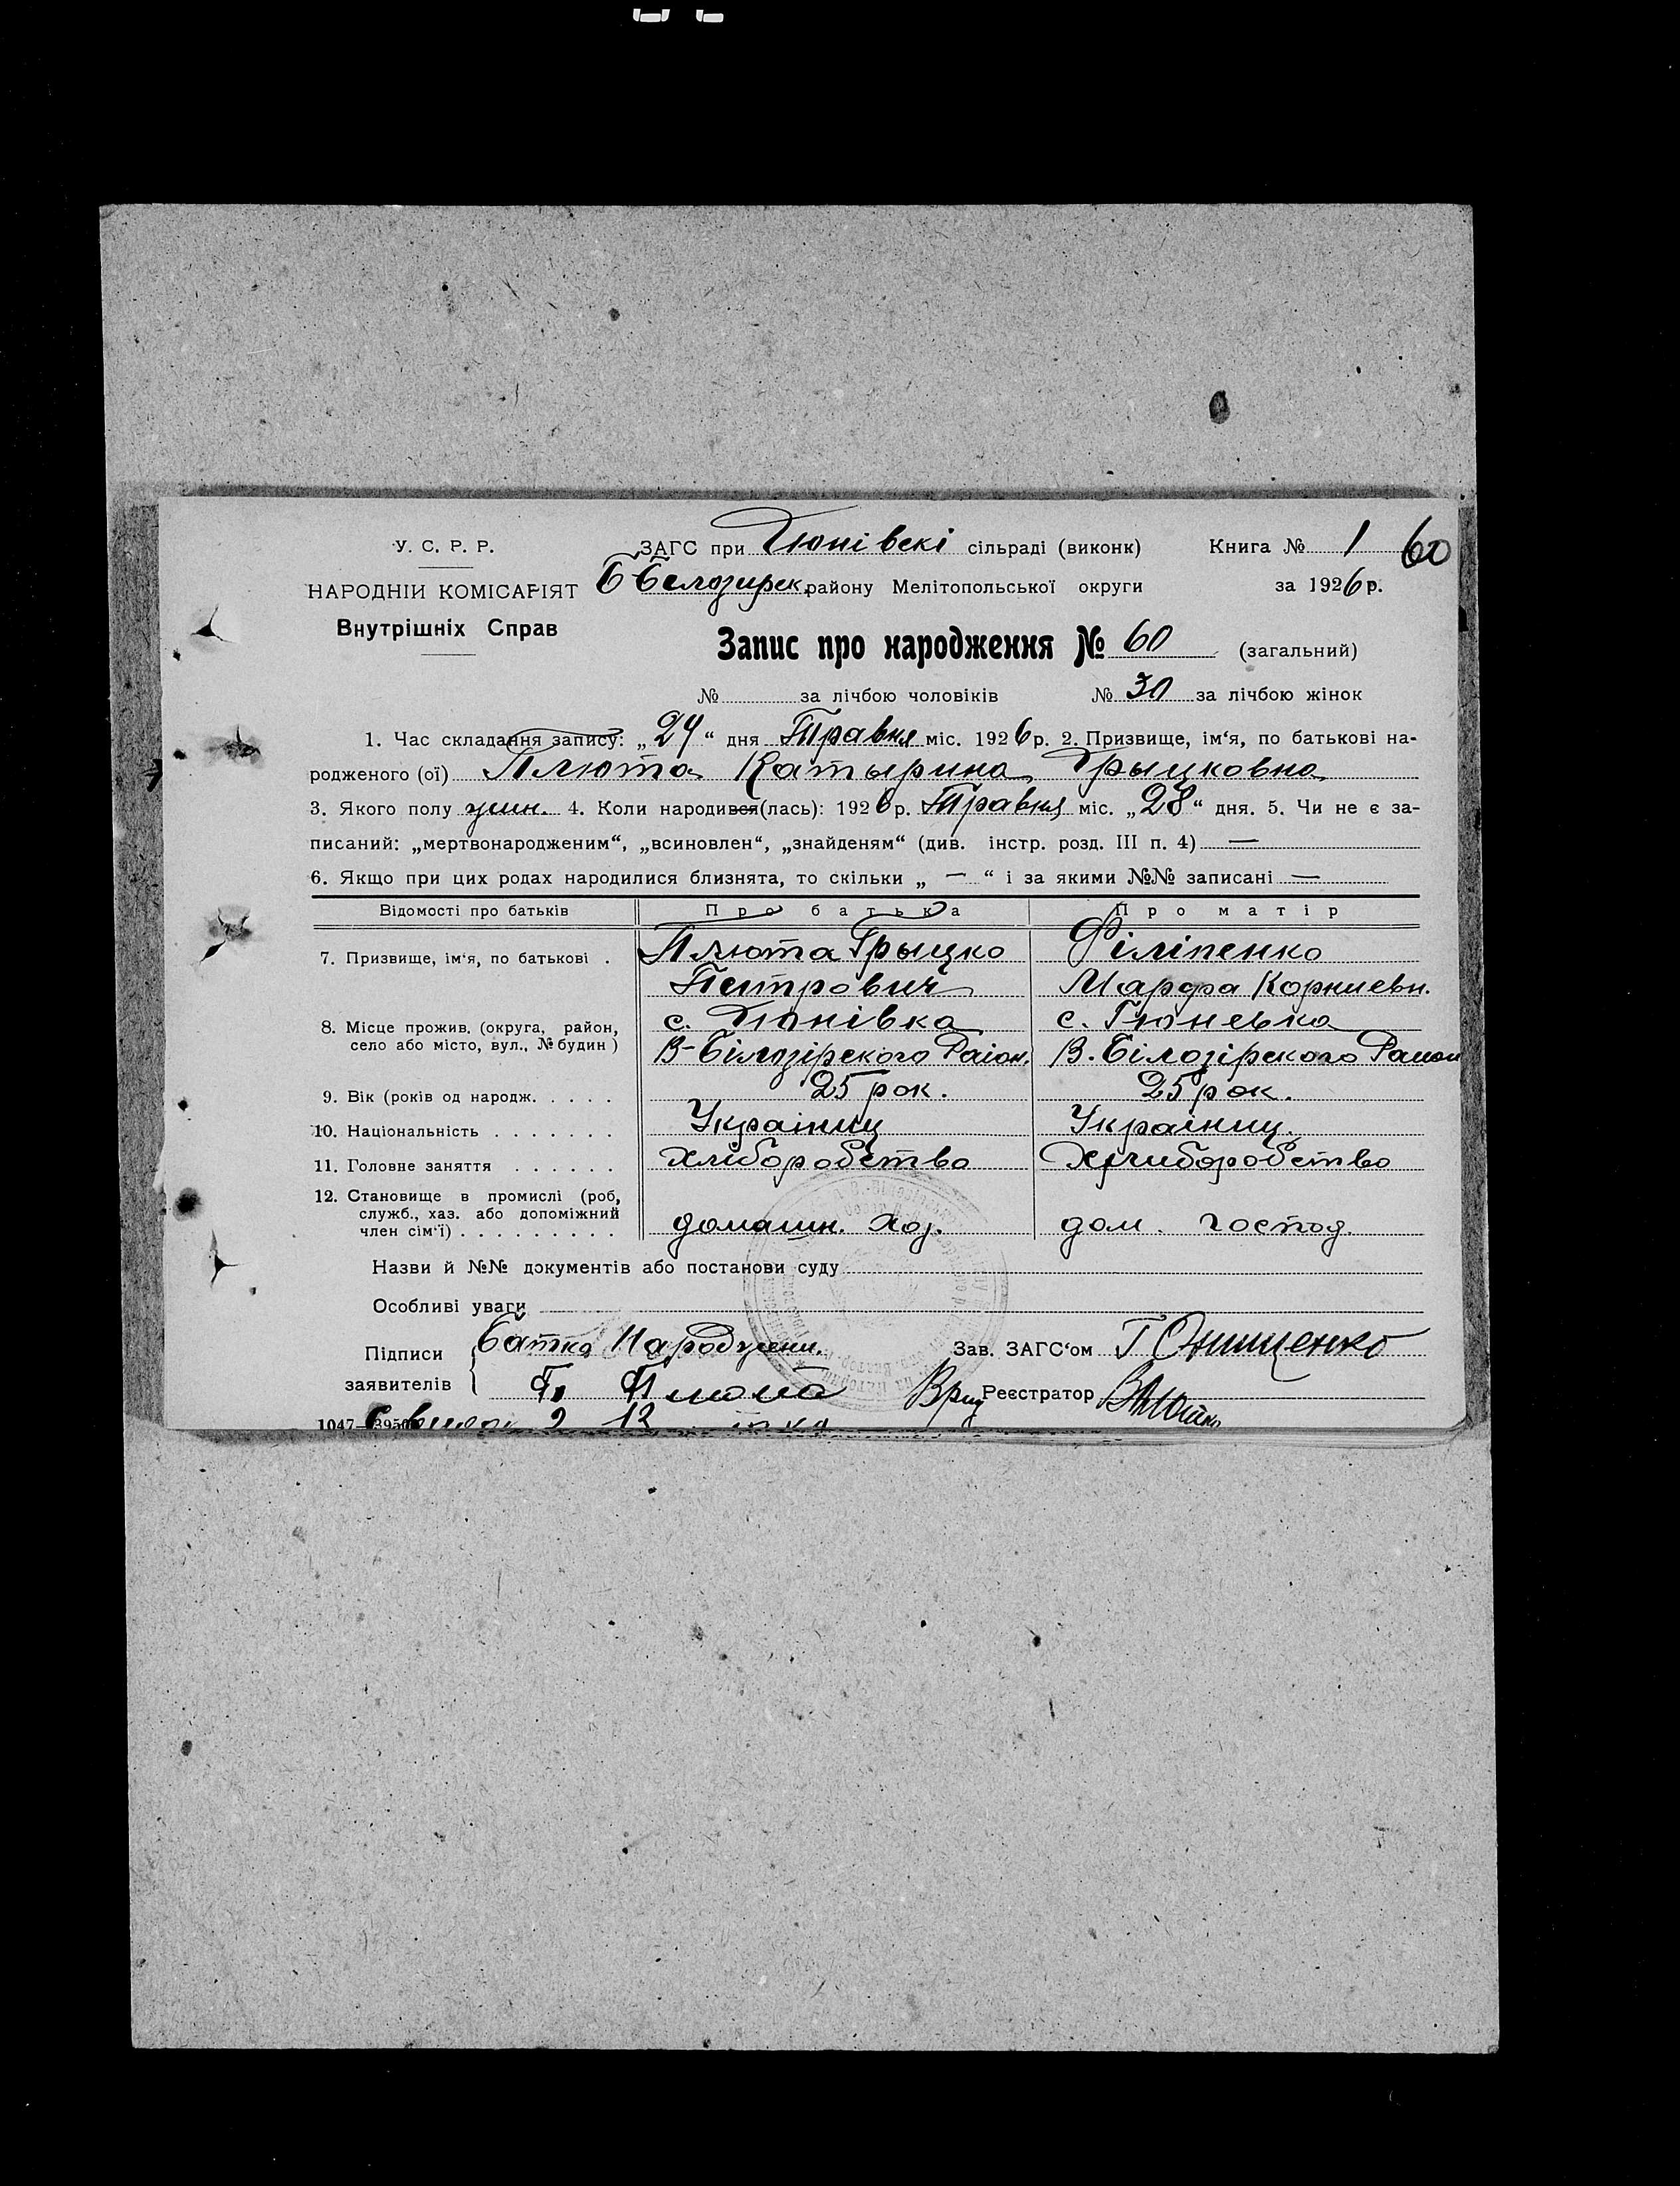 У. С. Р. Р.
НАРОДНІЙ КОМІСАРІЯТ
Внутрішніх Справ
ЗАГС при Тюнівскі сільраді (виконк)
Книга № 1 60
Б-Белозирек. району Мелітопольської округи
за 1926 р.
Запис про народження № 60 (загальний)
№ за лічбою чоловіків № 30 за лічбою жінок
1. Час складання запису: „24“ дня Травня міс. 1926 р. 2. Призвище, ім‘я, по батькові на-
родженого (ої) Плюта Катырина Грыцковна
3. Якого полу жин. 4. Коли народився(лась): 1926 р. Травня міс. „28“ дня. 5. Чи не є за-
писаний: „мертвонародженим“, „всиновлен“, „знайденям“ (див. інстр. розд. III п. 4) —
6. Якщо при цих родах народилися близнята, то скільки „ — “ і за якими №№ записані —
Відомості про батьків Про батька Про матір
7. Призвище, ім‘я, по батькові . Плюта Грыцко Філіпенко
Петрович Марфа Корниевн.
8. Місце прожив. (округа, район, с. Тюнівка с. Тюневка
село або місто, вул., № будин) В-Білозірского Раіон. В. Білозірского Раион
9. Вік (років од народж. . . . . 25 рок. 25 рок.
10. Національність . . . . . . . Українц Українц.
11. Головне заняття . . . . . . Хліборобство Хлиборобство
12. Становище в промислі (роб,
служб., хаз. або допоміжний
член сім‘ї) . . . . . . . . . домашн. хоз. дом. господ.
Назви й №№ документів або постанови суду
Особливі уваги
Підписи заявителів Батко Народжени.
Г. Плюта
Зав. ЗАГС‘ом Г Онищенко
Врид Реєстратор
1047—3950